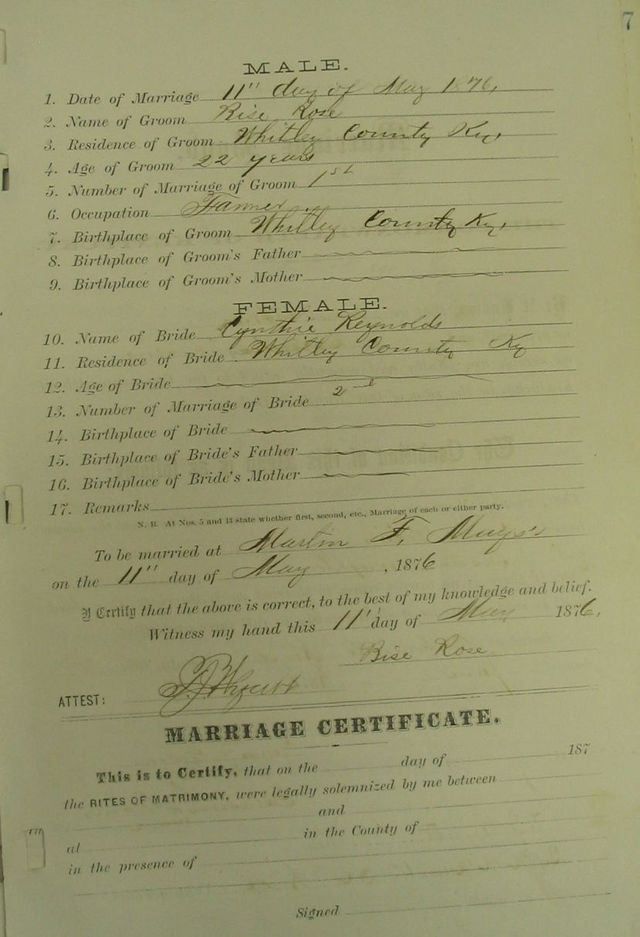 7
MALE.
1. Date of Marriage 11" day of May 1876,
2. Name of Groom Rise Rose
3. Residence of Groom Whitley County Ky,
4. Age of Groom 22 years
5. Number of Marriage of Groom 1st
6. Occupation Farmer
7. Birthplace of Groom Whitley County Ky,
8. Birthplace of Groom's Father
9. Birthplace of Groom's Mother
FEMALE.
10. Name of Bride Cynthie Reynolds
11. Residence of Bride Whitley County Ky
12. Age of Bride
13. Number of Marriage of Bride 2
14. Birthplace of Bride
15. Birthplace of Bride's Father
16. Birthplace of Bride's Mother
17. Remarks
N. B. At Nos. 5 and 13 state whether first, second, etc., Marriage of each or either party.
To be married at Martin F.
on the 11" day of May, 1876
I Certify that the above is correct, to the best of my knowledge and belief.
Witness my hand this 11" day of May 1876,
Rise Rose
ATTEST:
MARRIAGE CERTIFICATE.
This is to Certify, that on the day of 187
the RITES OF MATRIMONY, were legally solemnized by me between
and
at in the County of
in the presence of
Signed